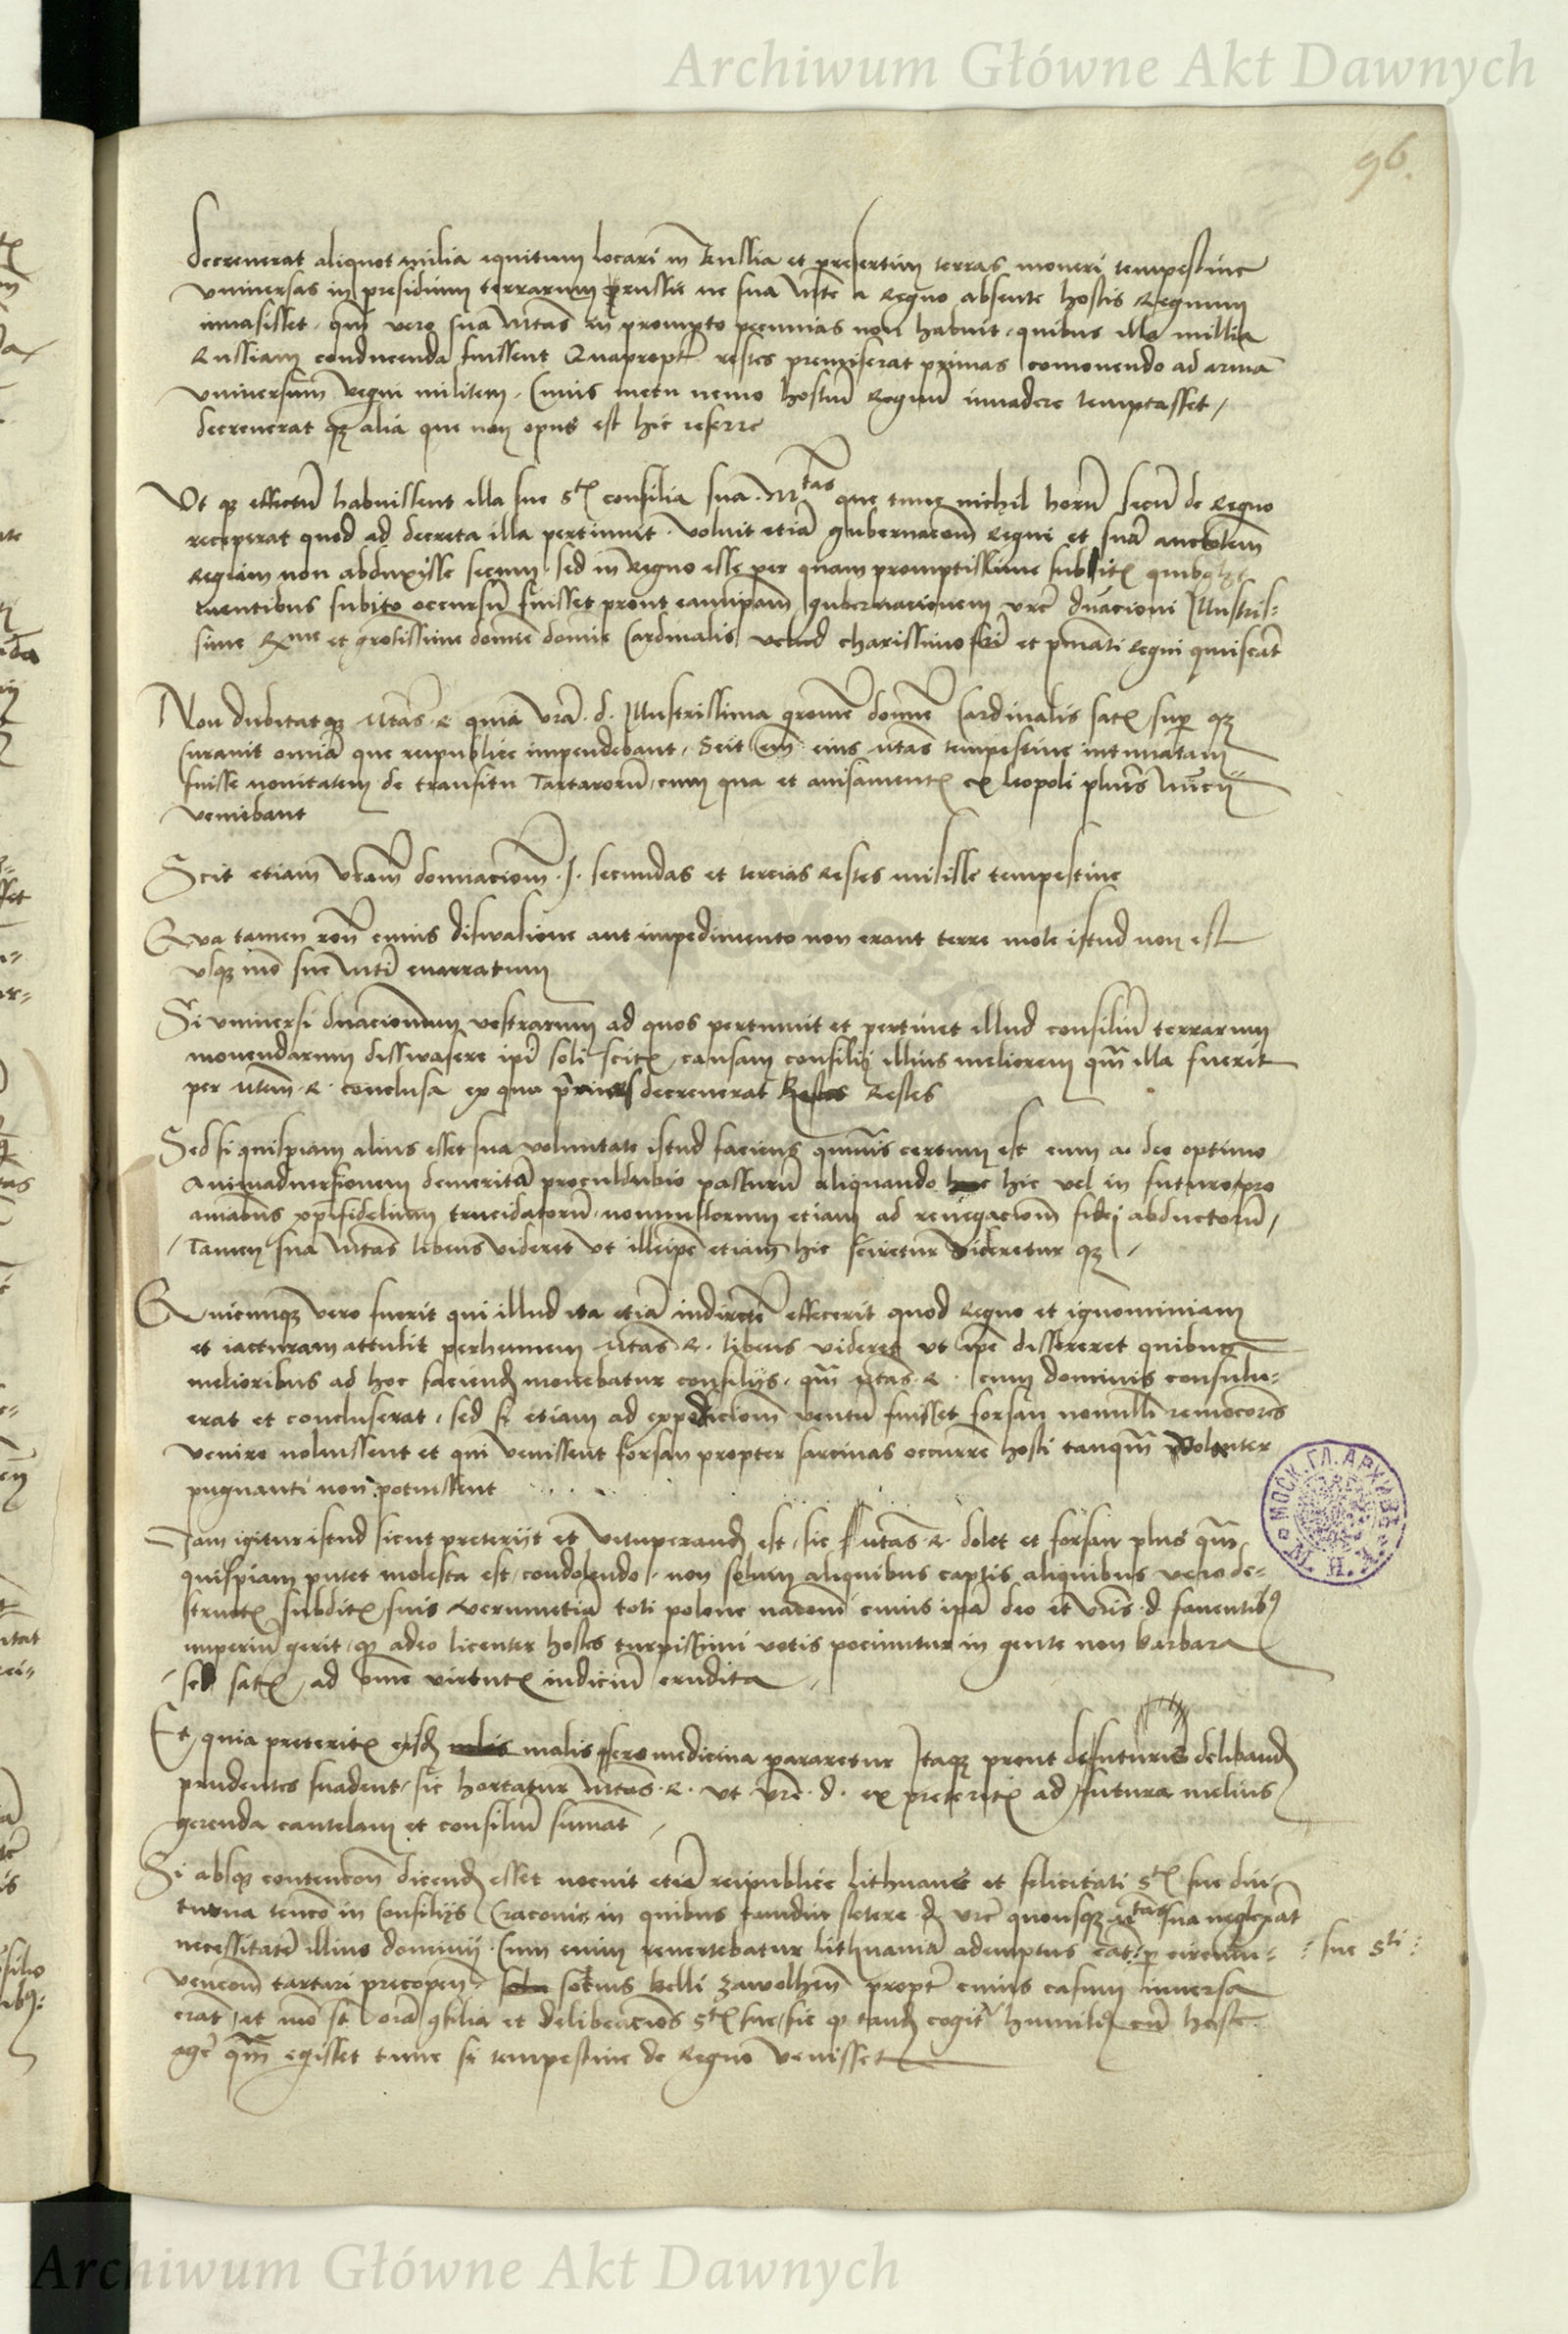 Archiwum Główne Akt Dawnych
96.
decreverat aliquot milia equitum locari in Russia et presertim terras moveri tempestive
universas in presidium terrarum prussie ne sua Mte a Regno absente hostis Regnum
invasisset. qm vero sua Mtas in prompto pecunias non habuit. quibus illa millia
Russiam conducenda fuissent Quapropter restes premiserat primas comonendo ad arma
universum regni militem. Cuius metu nemo hostium Regnum invadere temptasset,
decreverat qz alia que non opus est hic referre
Ut qz effectum habuissent illa sue Stis consilia sua Mtas que tunc nichil horum secum de Regno
receperat quod ad decreta illa pertinuit. voluit etiam gubernacom Regni et suam auctotem
Regiam non abduxisse secum sed in Regno esse per quam promptissime
subito occursum fuisset prout eam ipam gubernacionem vre dnacioni Illustris-
sime Rme et grosissime domine domine Cardinalis velud charissimo fri et pmati regni
Non dubitat qz Mtas R quia vra d. Illustrissima domine Cardinalis satis super qz
Curavit omnia que reipublice impendebant. Scit em eius Mtas tempestive intimatam
fuisse novitatem de transitu Tartarorum, cum qua et avisamentis ex leopoli plures nuncii
venibant
Scit etiam vram donnaciom. I. secundas et tercias restes misisse tempestive
Qua tamen ron cuius diswasione aut impedimento non erant terre mote istud non est
usqz mo sue Mti enarratum
Si universi dnacionum vestrarum ad quos pertinuit et pertinet illud consilium terrarum
movendarum disswasere ipi soli scitis causam consilii illius meliorem qm illa fuerit
per Mtem R. conclusa ex qua decreverat Restes
Sed si quispiam alius esset sua voluntate istud faciens quamvis certum est eum a deo optimo
animadversionem demeritam proculdubio passurum aliquando hic vel in futuro pro
animabus xpifidelium trucidatorum nonnullorum etiam ad renegaciom fidei abductorum,
Tamen sua Mtas libens videret ut ille ipe etiam hic sciretur videretur qz
Quicunqz vero fuerit qui illud ita etiam indirecte effecerit quod Regno et ignominiam
et iacturam attulit perhennem Mtas R. libens videret ut ipe dissereret quibus
melioribus ad hoc faciend movebatur consiliis. qm Mtas R. cum dominis consulu-
erat et concluserat, sed si etiam ad expediciom ventum fuisset forsan nonnulli remociores
venire noluissent et qui venissent forsan propter sarcinas occurre hosti tanqm volanter
pugnanti non potuissent
Iam igitur istud sicut preteriit et vituperand est, sic Mtas R. dolet et forsan plus qm
quispiam putet molesta est, condolendo, non solum aliquibus captis aliquibus vero de-
structis subditis suis verumetiam toti polone naciom cuius ipa deo et vris d. faventibus
imperium gerit, qz adeo licenter hostes turpissimi votis pociuntur in gente non barbara
sed satis ad omne virtutis indicium erudita
Et quia preteritis malis sero medicina pararetur Itaqz prout de futuris deliband
prudentes suadent, sic hortatur Mtas R. ut vre d. ex preteritis ad futura melius
gerenda cautelam et consilium sumant
Si absqz contencon dicend esset nocuit etiam reipublice lithuanie et felicitati Stis sue diu-
turna tencio in Consiliis Cracovie in quibus tamdiu stetere d. vre quousqz Mtas sua neglexat
necessitatem illius dominii. Cum enim revertebatur lithuaniam ademptus erat per circum-
: sue Sti :
vencom tartari precopen. socius belli zawolhen propter cuius casum inversa
erant ut mo st ora consilia et deliberacios Stis sue, sic qz tand cogitur humilius cum hoste
agere qm egisset tunc si tempestive de Regno venisset
МОСК. ГЛ. АРХИВЪ
Archiwum Główne Akt Dawnych